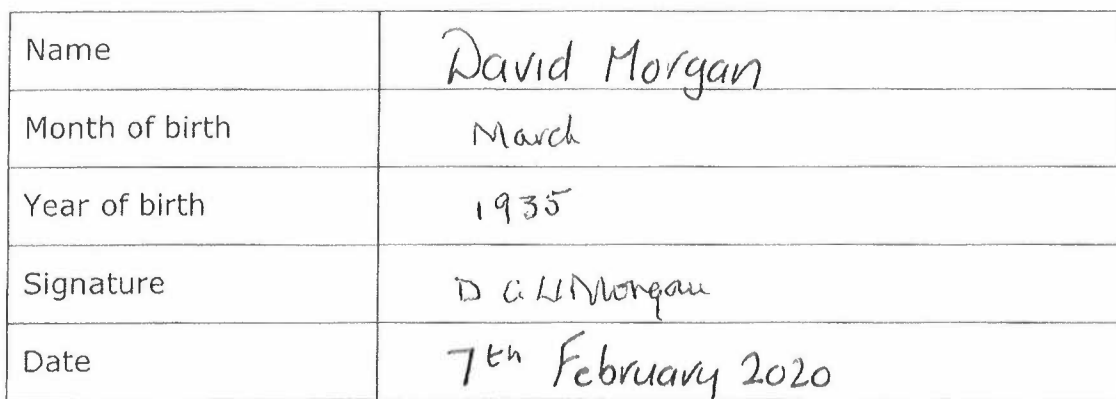 Name David Morgan
Month of birth March
Year of birth 1935
Signature D Morgan
Date 7th February 2020